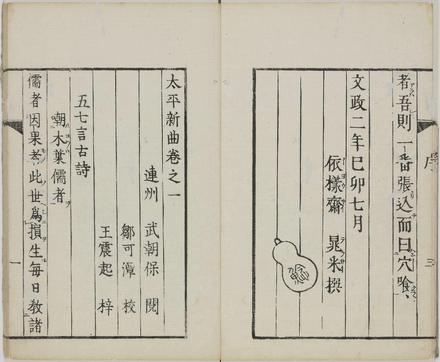 者吾則一番張込而曰穴喰
文政二年己卯七月
依樣齋 晁米撰
序
三
太平新曲卷之一
連州 武朝保 閲
鄒可潭 校
王震起 梓
五七言古詩
嘲木葉儒者
儒者因果者此世爲損生毎日教諸
一